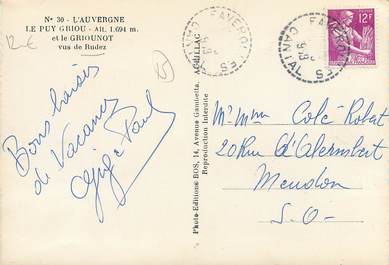 N° 30 - L'AUVERGNE
LE PUY GRIOU - Alt. 1.694 m.
et le GRIOUNOT
vus de Rudez
12 €
Bons baisers
de Vacances
Paul
Photo-Editions BOS, 14, Avenue Gambetta, AURILLAC
Reproduction Interdite
CANTAL
12F
Mr Mme Colé Robert
20 Rue d'Alembert
Meudon
S.-O-